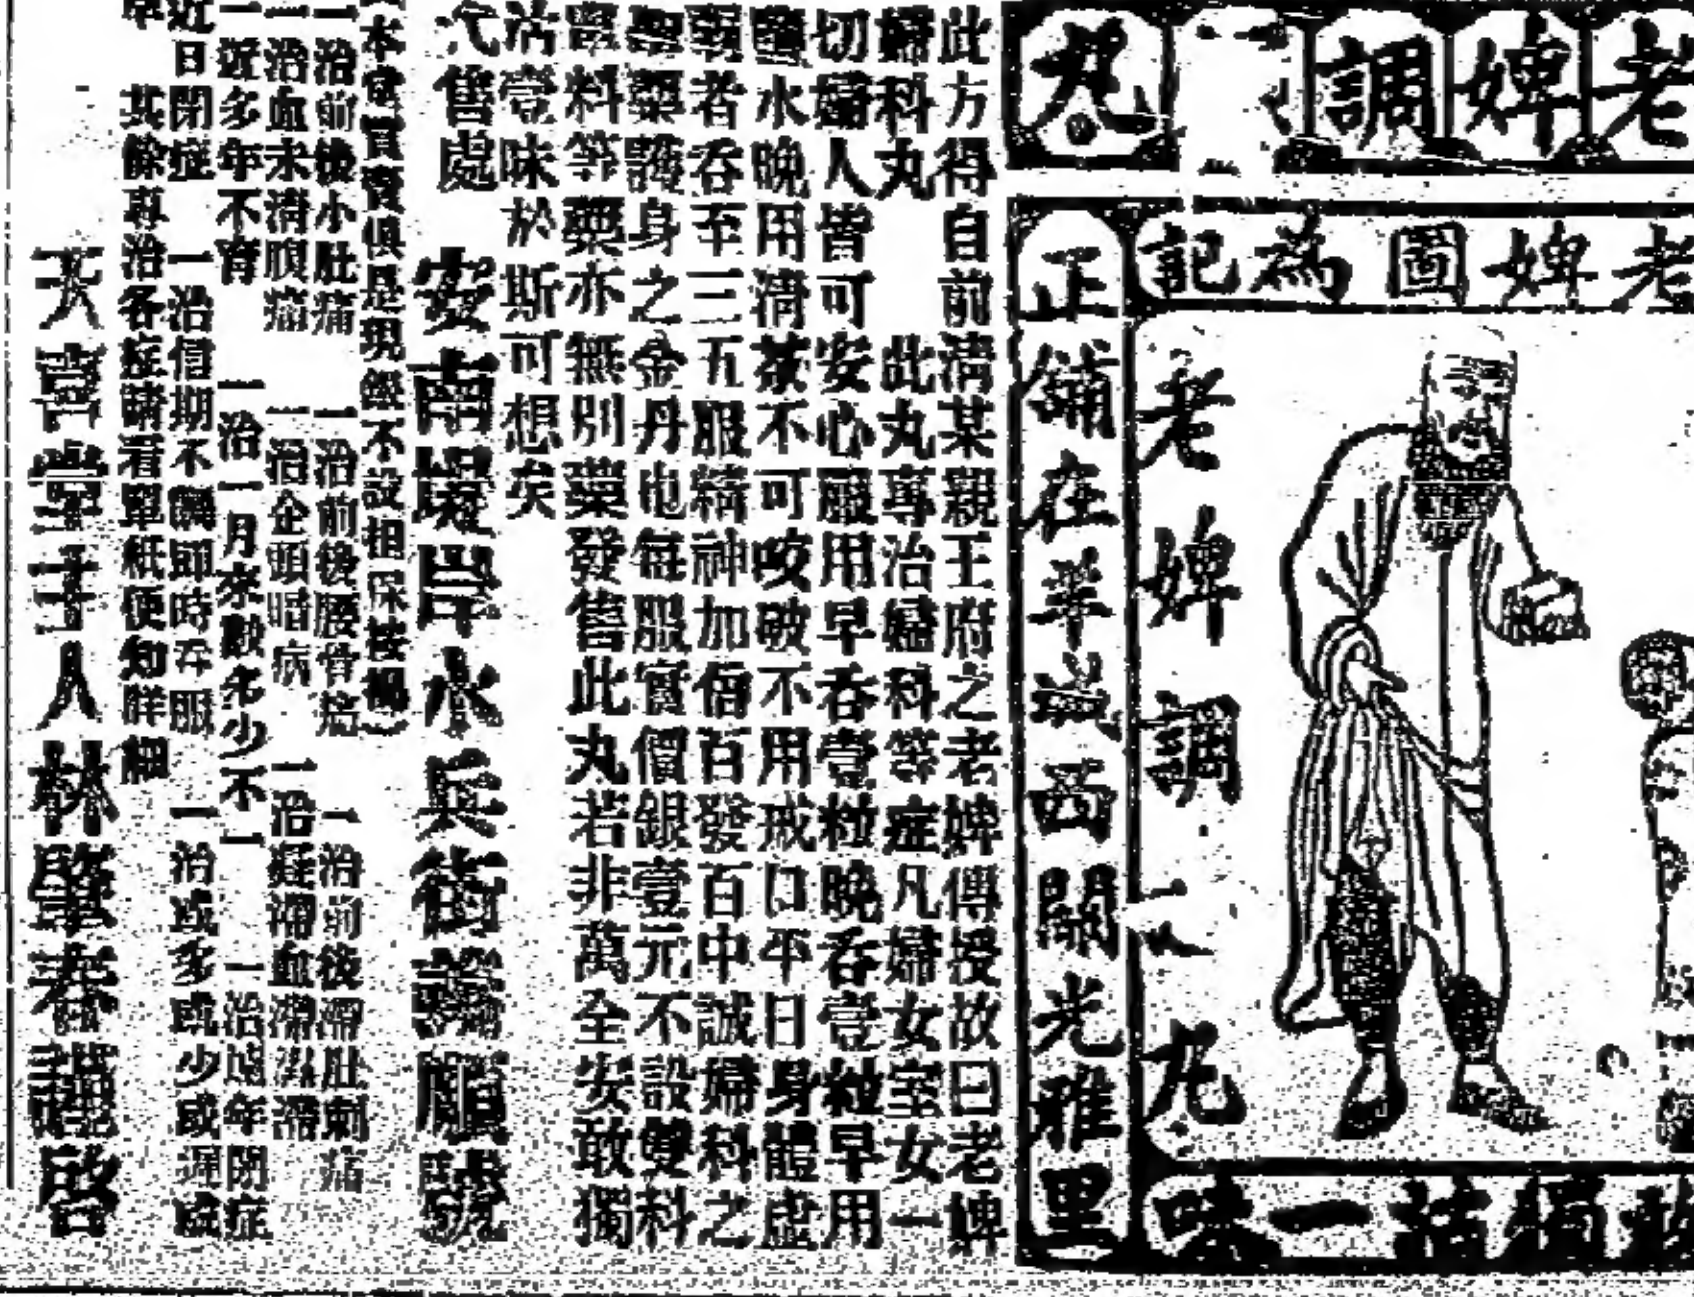 老婢調
丸
老婢圖為記
老婢調
丸
獨沽一味
正舖在羊城西關光雅里
此方得自前清某親王府之老婢傳授故曰老婢
婦科丸 此丸專治婦科等症凡婦女室女一
切婦人皆可安心服用早吞壹粒晚吞壹粒早用
鹽水晚用清茶不可咬破不用戒口平日身體虛
弱者吞至三五服精神加倍百發百中誠婦科之
聖藥護身之金丹也每服實價銀壹元不設雙料
單料等藥亦無別藥發售此丸若非萬全安敢獨
沽壹味於斯可想矣
代售處 安南堤岸水兵街
本堂買賣俱是現銀不設担保
一治前後小肚痛 一治前後腰骨痛 一治前後滯肚刺痛
一治血未清腹痛 一治企頭暗病 一治疑滯血滯
一近多年不育 一治一月來數多少不一 一治遠年閉症
近日閉症 一治信期不調即時吞服 一治或多或少或遲或
早 其餘專治各症請看單紙便知詳細
天喜堂主人林肇春謹啓